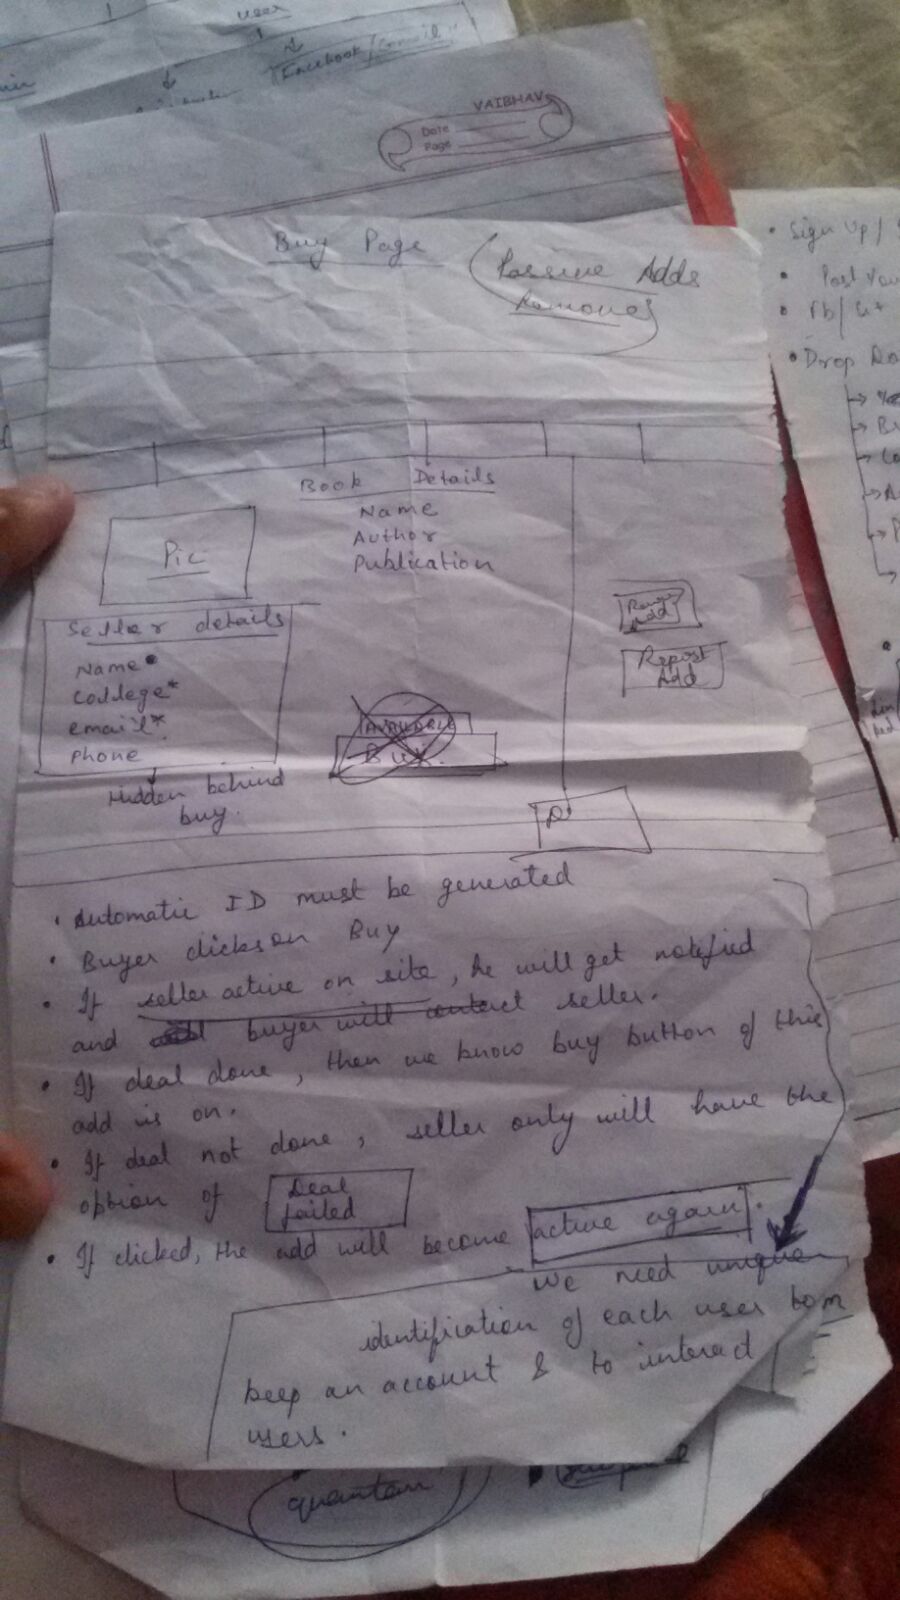 user
Facebook/Gmail
VAIBHAV
Date
Page
Buy Page
Passive Adds
Removed
Book Details
Name
Author
Publication
Pic
Seller details
Name
College*
email*
Phone
Hidden behind
buy.
AVAILABLE
Buy
Add
Repost
Add
• Automatic ID must be generated
• Buyer clicks on Buy
• If seller active on site, he will get notified
and buyer will contact seller.
• If deal done, then we know buy button of this
add is on.
• If deal not done, seller only will have the
option of Deal
failed
• If clicked, the add will become active again.
We need unique
identification of each user
keep an account & to interact
users.
• Sign Up/
• Post You
• Fb/G+
• Drop
quantum